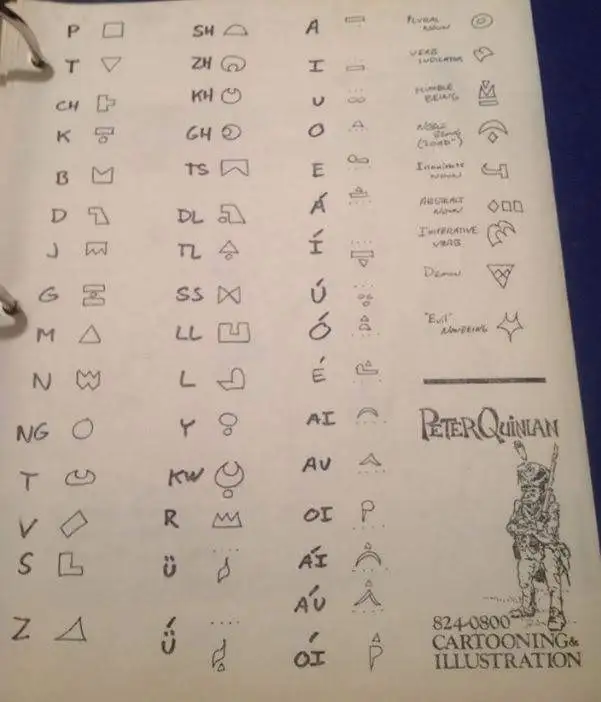 P
T
CH
K
B
D
J
G
M
N
NG
T
V
S
Z
SH
ZH
KH
GH
TS
DL
TL
SS
LL
L
Y
KW
R
ü
ǘ
A
I
U
O
E
Á
Í
Ú
Ó
É
AI
AU
OI
ÁI
ÁU
ÓI
PLURAL
NOUN
VERB
INDICATOR
HUMBLE
BEING
NOBLE
BEING
("LORD")
INANIMATE
NOUN
ABSTRACT
NOUN
IMPERATIVE
VERB
DEMON
"EVIL"
PETER QUINLAN
824-0800
CARTOONING &
ILLUSTRATION